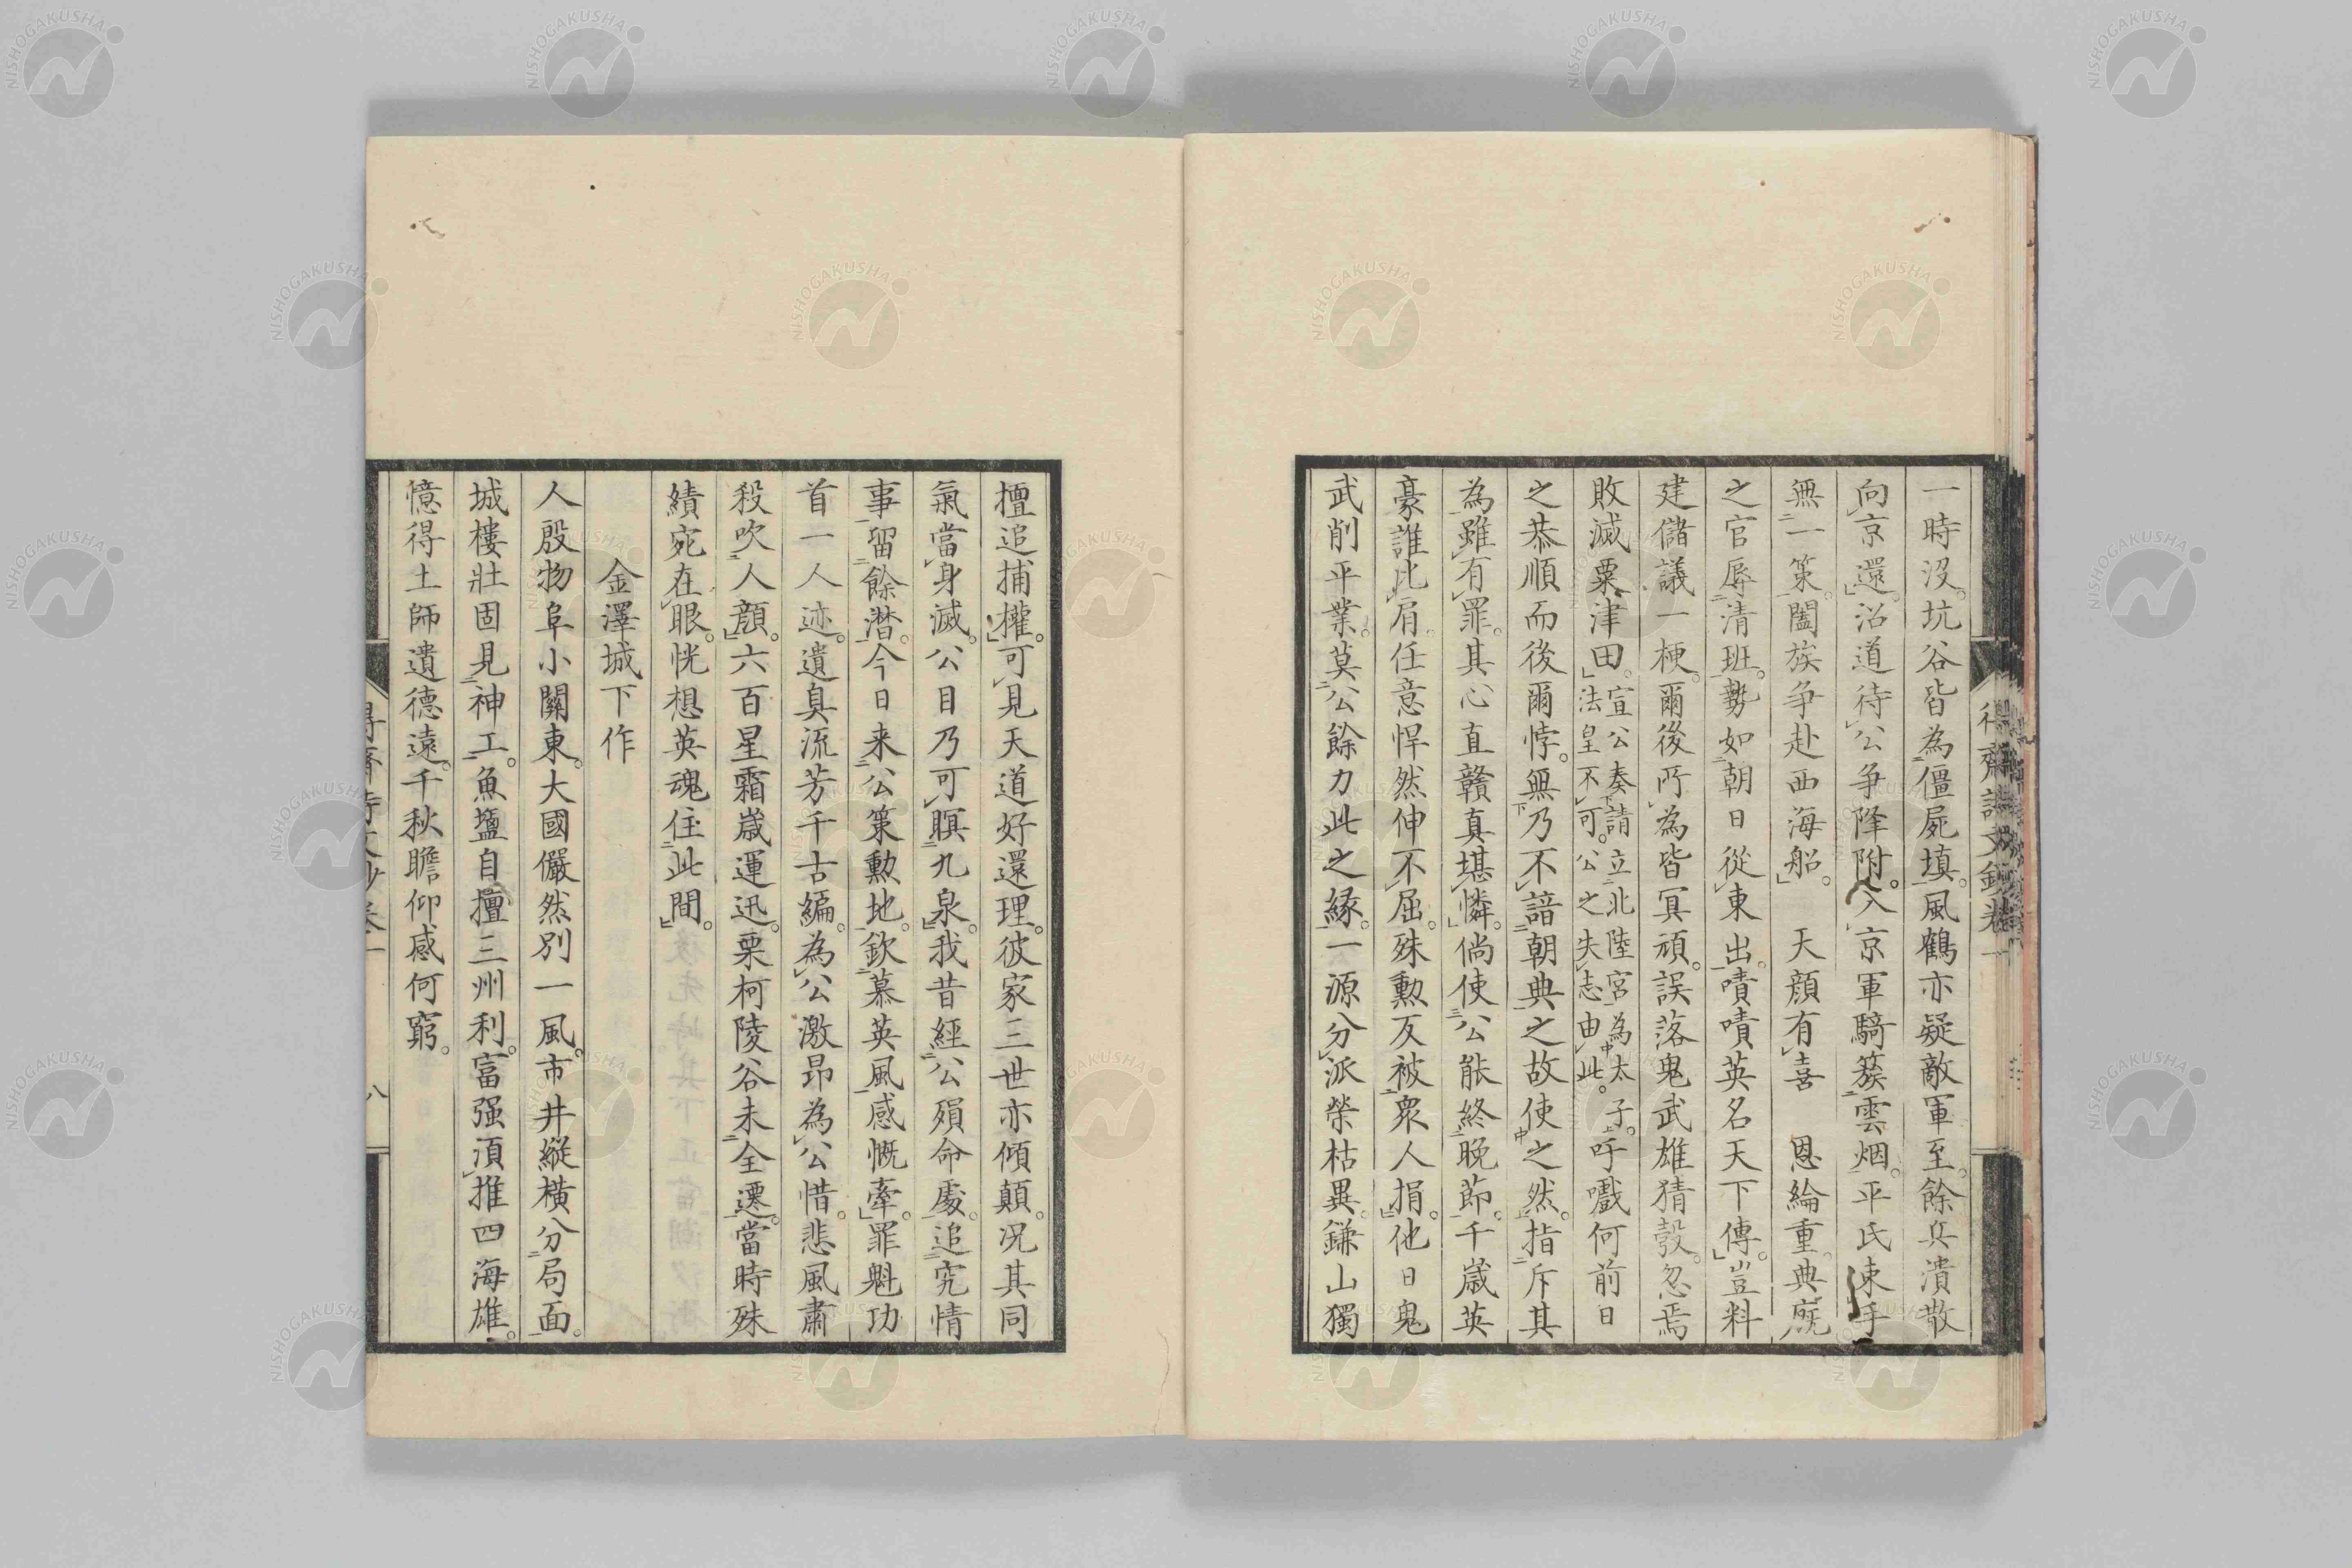 一時沒。坑谷皆為僵屍填。風鶴亦疑敵軍至。餘兵潰散
向京還。沿道待公爭降附。入京軍騎簇雲烟。平氏束手
無一策。闔族争赴西海船。天顔有喜恩綸重。典廐
之官辱清班。勢如朝日從東出。嘖嘖英名天下傳。豈料
建儲議一梗。爾後所為皆冥頑。誤落鬼武雄猜彀。忽焉
敗滅粟津田。宣公奏請立北陸宮為太子。法皇不可。公之失志由此。呼嚱何前日
之恭順而後爾悖。無乃不諳朝典之故使之然。指斥其
為雖有罪。其心直贛真堪憐。倘使公能終晚節。千歳英
豪誰比肩。任意悍然伸不屈。殊勳反被衆人捐。他日鬼
武削平業。莫公餘力此之縁。一源分派榮枯異。鎌山獨
擅追捕權。可見天道好還理。彼家三世亦傾顛。况其同
氣當身滅。公目乃可瞑九泉。我昔經公殞命處。追究情
事留餘潛。今日来公策勲地。欽慕英風感慨牽。罪魁功
首一人迹。遺臭流芳千古編。為公激昂為公惜。悲風肅
殺吹人顔。六百星霜歳運迅。栗柯陵谷未全遷。當時殊
績宛在眼。恍想英魂住此間。
金澤城下作
人殷物阜小關東。大國儼然別一風。市井縱橫分局面。
城樓壯固見神工。魚鹽自擅三州利。富强湏推四海雄。
憶得土師遺德遠。千秋瞻仰感何窮。
八
NISHOGAKUSHA